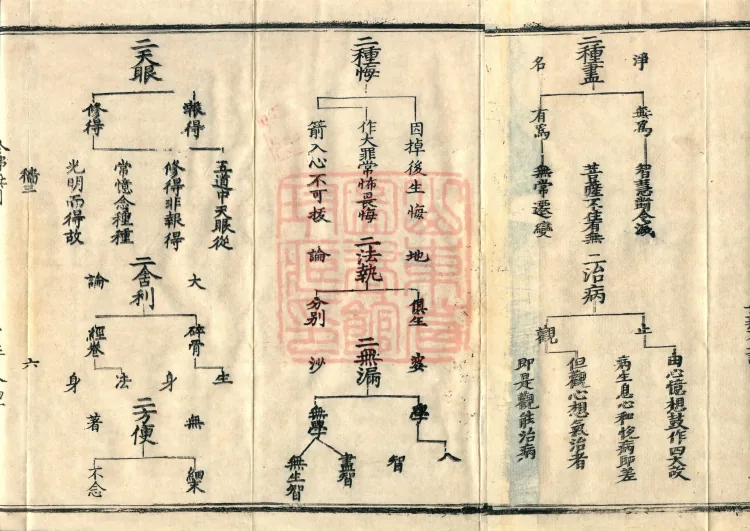 二種盡
淨
名
無爲
智慧都令滅
有爲
無常遷變
菩薩不住有無
二治病
止
由心憶想鼓作四大故
病生息心和悅病即差
觀
但觀心想氣治者
即是觀能治病
二種悔
因掉後生悔
作大罪常怖畏悔
箭入心不可拔
二法執
地
論
俱生
分別
二無漏
婆
沙
學
八
智
無學
盡智
無生智
二天眼
報得
修得
五道中天眼從
修得非報得
常憶念種種
光明而得故
二舍利
大
論
碎骨
生
身
經卷
法
身
二方便
無
著
細
不念
六